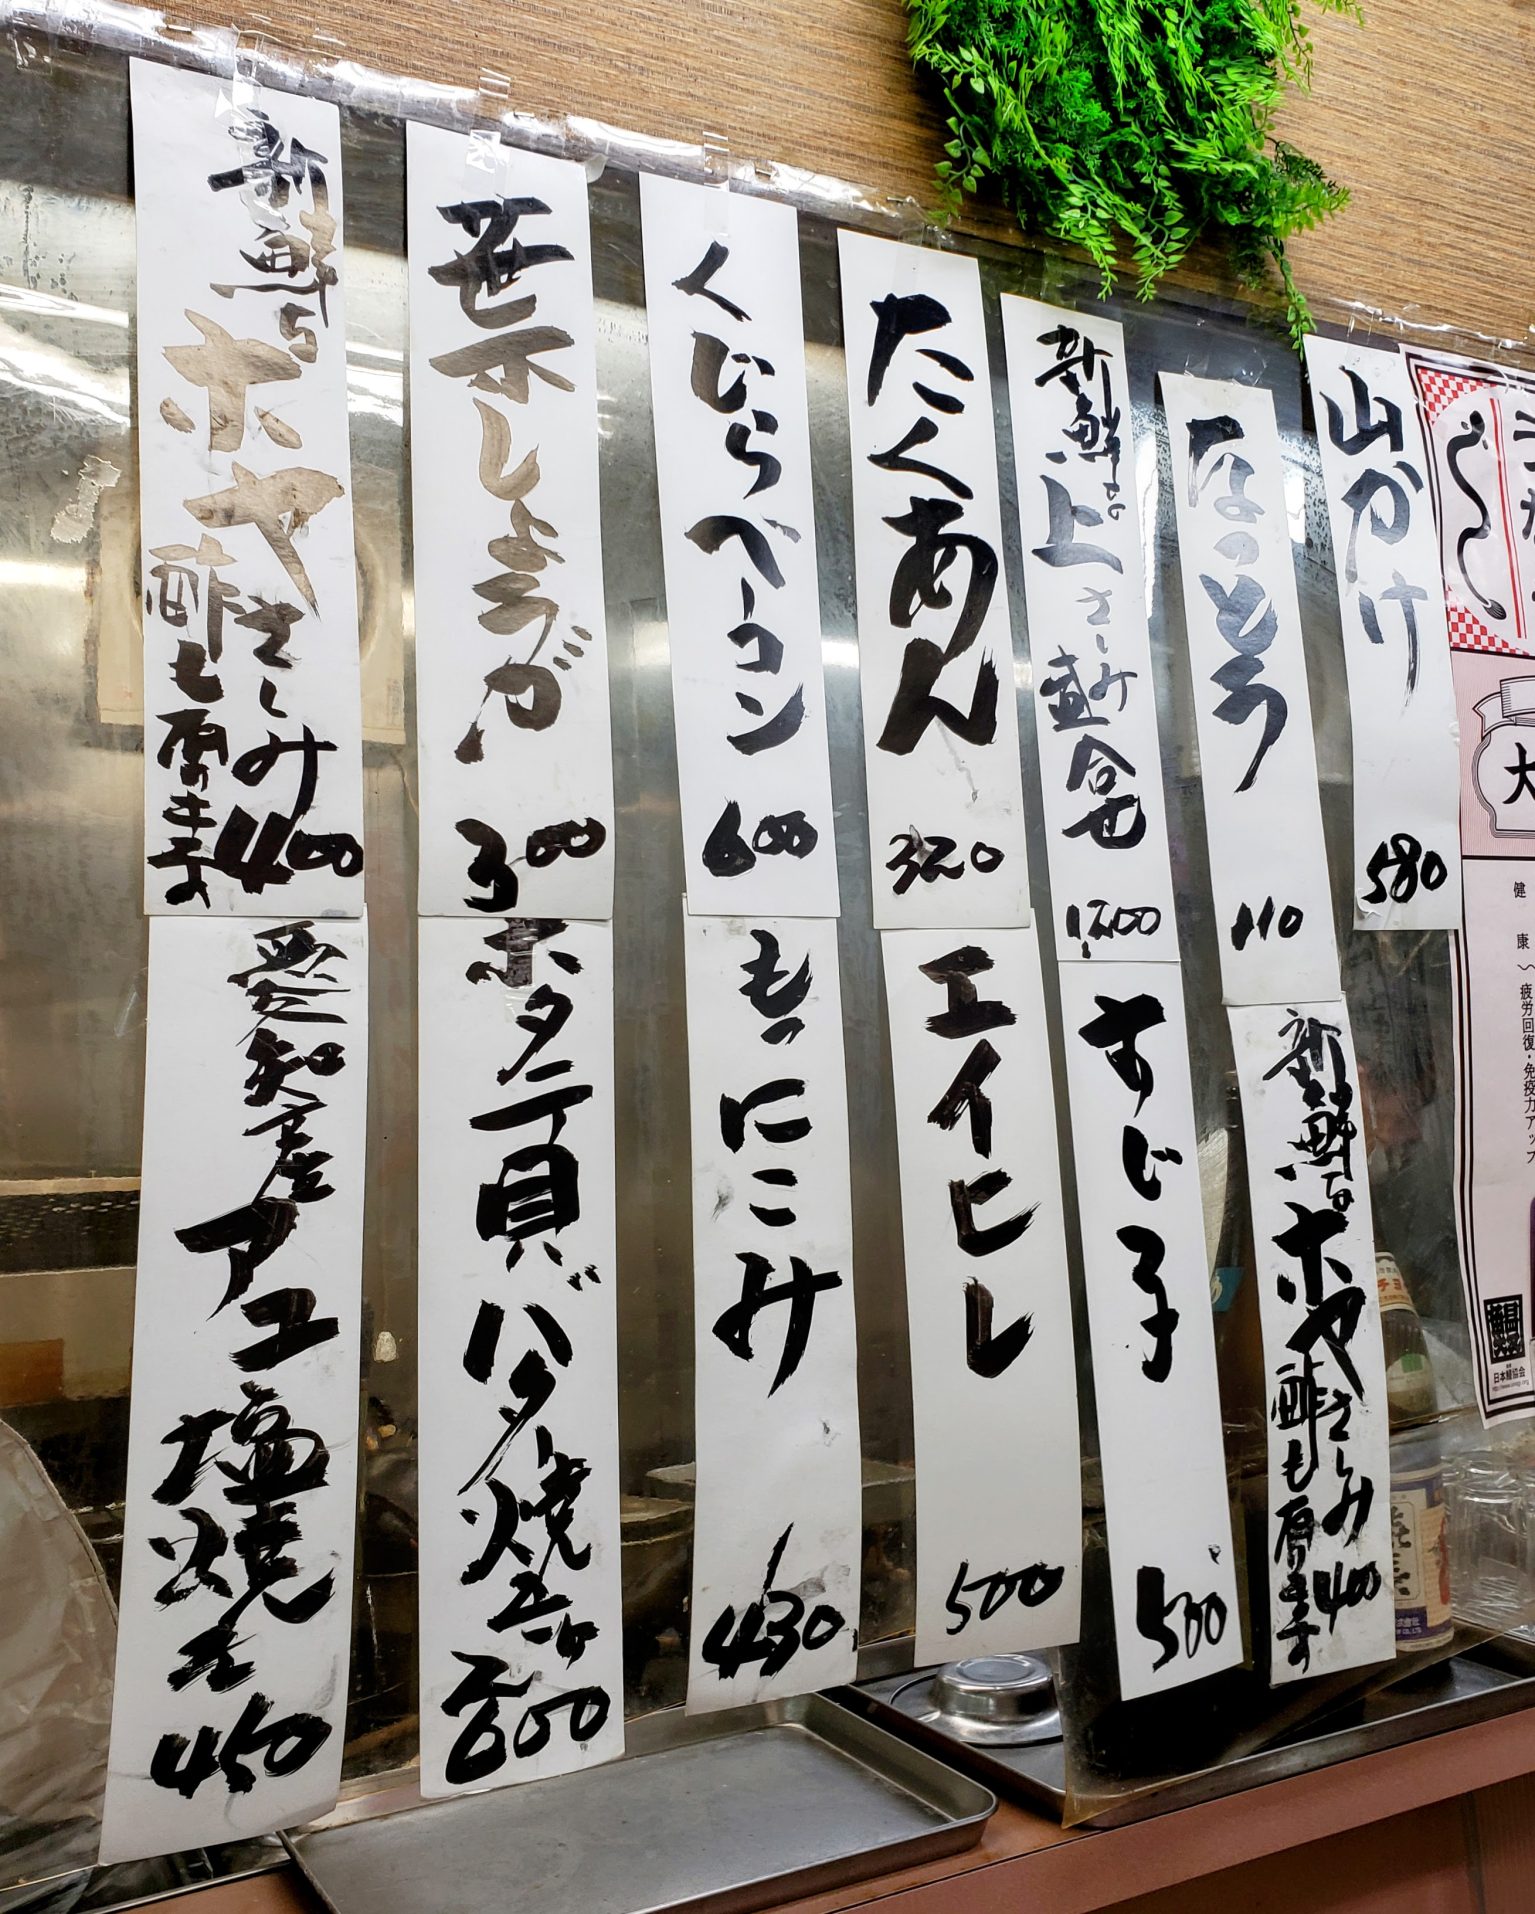 山かけ
580
なっとう
110
新鮮の上さしみ盛合せ
1,200
たくあん
320
くじらベーコン
600
芽しょうが
300
新鮮な
ホヤさしみ400
酢も有ります
新鮮な
ホヤさしみ400
酢も有ります
すじ子
500
エイヒレ
500
もつにこみ
430
ホタテ貝バター焼
600
愛知産
アユ塩焼き
450
大
健康
疲労回復・免疫力アップ
日本鰻協会